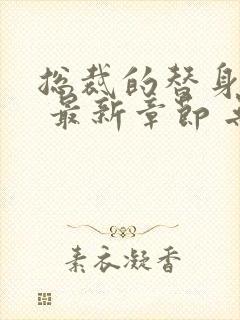 总裁的替身
最新章节
素衣凝香